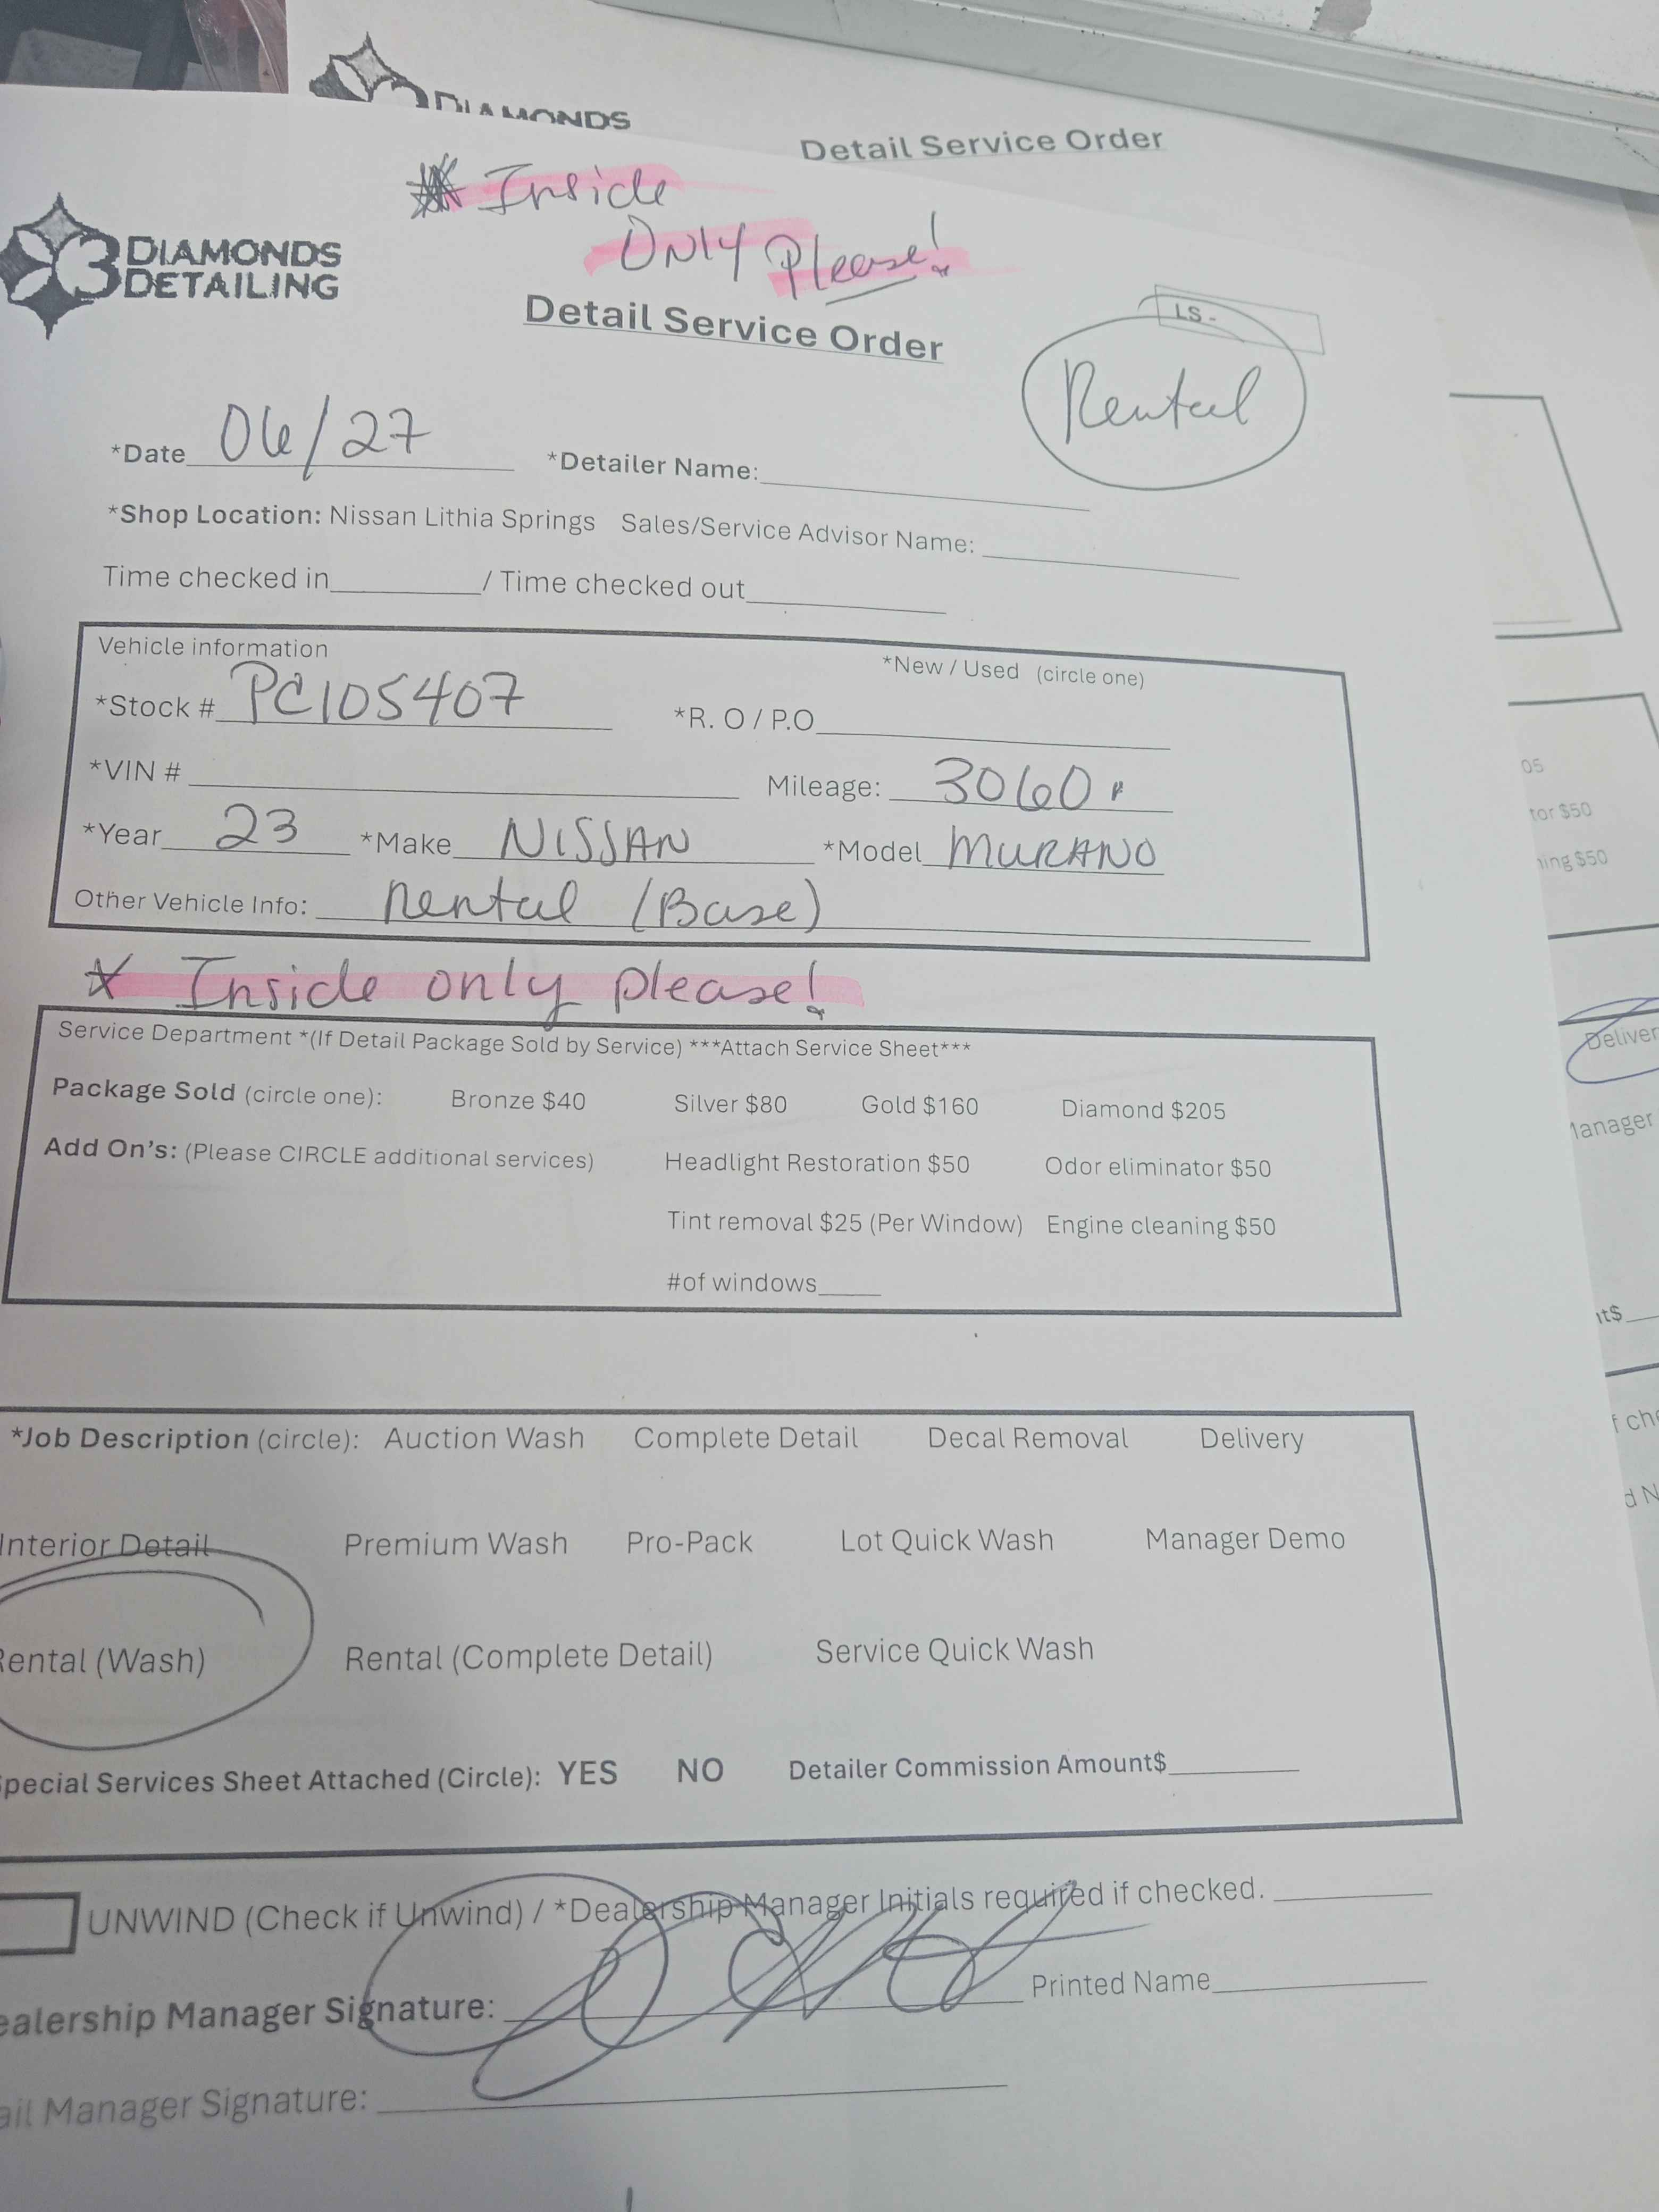 DIAMONDS
Detail Service Order
Inside
ONLY Please!
3 DIAMONDS
DETAILING
Detail Service Order
LS -
Rental
*Date 06/27 *Detailer Name:
*Shop Location: Nissan Lithia Springs Sales/Service Advisor Name:
Time checked in / Time checked out
Vehicle information
*New / Used (circle one)
*Stock # PC105407 *R. O / P.O
*VIN # Mileage: 3060
*Year 23 *Make NISSAN *Model MURANO
Other Vehicle Info: Rental (Base)
* Inside only please!
Service Department *(If Detail Package Sold by Service) ***Attach Service Sheet***
Package Sold (circle one): Bronze $40 Silver $80 Gold $160 Diamond $205
Add On's: (Please CIRCLE additional services) Headlight Restoration $50 Odor eliminator $50
Tint removal $25 (Per Window) Engine cleaning $50
#of windows
*Job Description (circle): Auction Wash Complete Detail Decal Removal Delivery
Interior Detail Premium Wash Pro-Pack Lot Quick Wash Manager Demo
Rental (Wash) Rental (Complete Detail) Service Quick Wash
Special Services Sheet Attached (Circle): YES NO Detailer Commission Amount$
UNWIND (Check if Unwind) / *Dealership Manager Initials required if checked.
ealership Manager Signature: Printed Name
ail Manager Signature:
05
tor $50
ning $50
Deliver
lanager
nt$
f che
d N